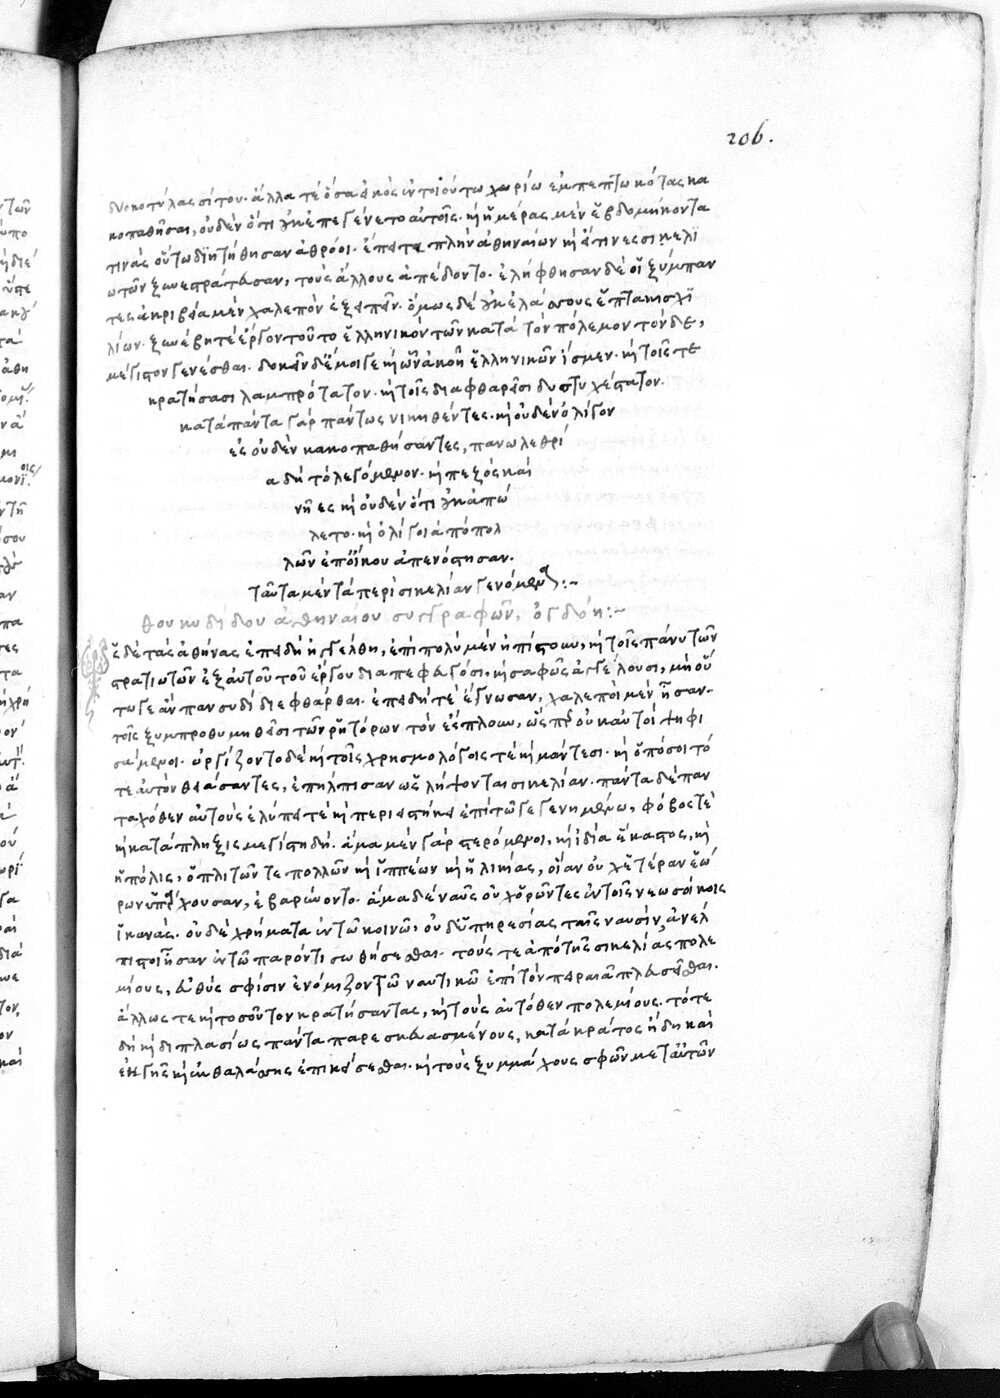 206.
δύο κοτύλας σίτου. ἄλλά τέ ὅσα εἰκὸς ἐν τοιούτω χωρίω ἐμπεπτωκότας κα
κοπαθῆσαι, οὐδὲν ὅτι οὐκ ἐπεγένετο αὐτοῖς. καὶ ἡμέρας μὲν ἑβδομήκοντα
τινὰς οὕτω διῃτήθησαν ἀθρόοι. ἔπειτα πλὴν ἀθηναίων καὶ εἴτινες σικελι
ωτῶν ξυνεστράτευσαν, τοὺς ἄλλους ἀπέδοντο. ἐλήφθησαν δὲ οἱ ξύμπαν
τες ἀκριβεία μὲν χαλεπὸν ἐξειπεῖν. ὅμως δὲ οὐκ ἐλάσσους ἑπτακισχι
λίων. ξυνέβη τὲ ἔργον τοῦτο ἑλληνικὸν τῶν κατὰ τὸν πόλεμον τόνδε,
μέγιστον γενέσθαι. δοκεῖν δ' ἔμοιγε καὶ ὧν ἀκοῆ ἑλληνικῶν ἴσμεν. καὶ τοῖς τε
κρατήσασι λαμπρότατον. καὶ τοῖς διαφθαρεῖσι δυστυχέστατον.
κατὰ πάντα γὰρ πάντως νικηθέντες. καὶ οὐδὲν ὀλίγον
ἐς οὐδὲν κακοπαθήσαντες, πανωλεθρί
α δὴ τὸ λεγόμενον. καὶ πεζὸς καὶ
νῆες καὶ οὐδὲν ὅτι οὐκ ἀπώ
λετο. καὶ ὀλίγοι ἀπὸ πολ
λῶν ἐπ' οἴκου ἀπενόστησαν.
ταῦτα μὲν τὰ περὶ σικελίαν γενόμενα :~
θουκυδίδου ἀθηναίου συγγραφῶν, ὀγδόη :~
ἐς δὲ τὰς ἀθήνας ἐπειδὴ ἠγγέλθη, ἐπὶ πολὺ μὲν ἠπίστουν, καὶ τοῖς πάνυ τῶν
στρατιωτῶν ἐξ αὐτοῦ τοῦ ἔργου διαπεφευγόσι, καὶ σαφῶς ἀγγέλουσι, μὴ οὕ
τω γε ἂν πανσυδὶ διεφθάρθαι. ἐπειδή τε ἔγνωσαν, χαλεποὶ μὲν ἦσαν
τοῖς ξυμπροθυμηθεῖσι τῶν ῥητόρων τὸν ἔκπλουν, ὥσπερ οὐκ αὐτοὶ ψηφι
σάμενοι. ὠργίζοντο δὲ καὶ τοῖς χρησμολόγοις τὲ καὶ μάντεσι. καὶ ὁπόσοι τό
τε αὐτὸν θειάσαντες, ἐπήλπισαν ὡς λήψονται σικελίαν. πάντα δὲ παν
ταχόθεν αὐτοὺς ἐλύπει τὲ καὶ περιεστήκει ἐπὶ τῶ γεγενημένω, φόβος τὲ
καὶ κατάπληξις μεγίστη δή. ἅμα μὲν γὰρ στερόμενοι, καὶ ἰδία ἕκαστος, καὶ
ἡ πόλις, ὁπλιτῶν τε πολλῶν καὶ ἱππέων καὶ ἡλικίας, οἵαν οὐχ ἑτέραν ἑώ
ρων ὑπάρχουσαν, ἐβαρύνοντο. ἅμα δὲ ναῦς οὐχ ὁρῶντες ἐν τοῖς νεωσοίκοις
ἱκανάς. οὐδὲ χρήματα ἐν τῶ κοινῶ, οὐδ' ὑπηρεσίας ταῖς ναυσίν, ἀνέλ
πιστοι ἦσαν ἐν τῶ παρόντι σωθήσεσθαι. τούς τε ἀπὸ τῆς σικελίας πολε
μίους, εὐθὺς σφίσιν ἐνόμιζον τῶ ναυτικῶ ἐπὶ τὸν πειραιᾶ πλευσεῖσθαι.
ἄλλως τε καὶ τοσοῦτον κρατήσαντας, καὶ τοὺς αὐτόθεν πολεμίους. τότε
δὴ καὶ διπλασίως πάντα παρεσκευασμένους, κατὰ κράτος ἤδη καὶ
ἐκ γῆς καὶ ἐκ θαλάσσης ἐπικείσεσθαι. καὶ τοὺς ξυμμάχους σφῶν μετ' αὐτῶν